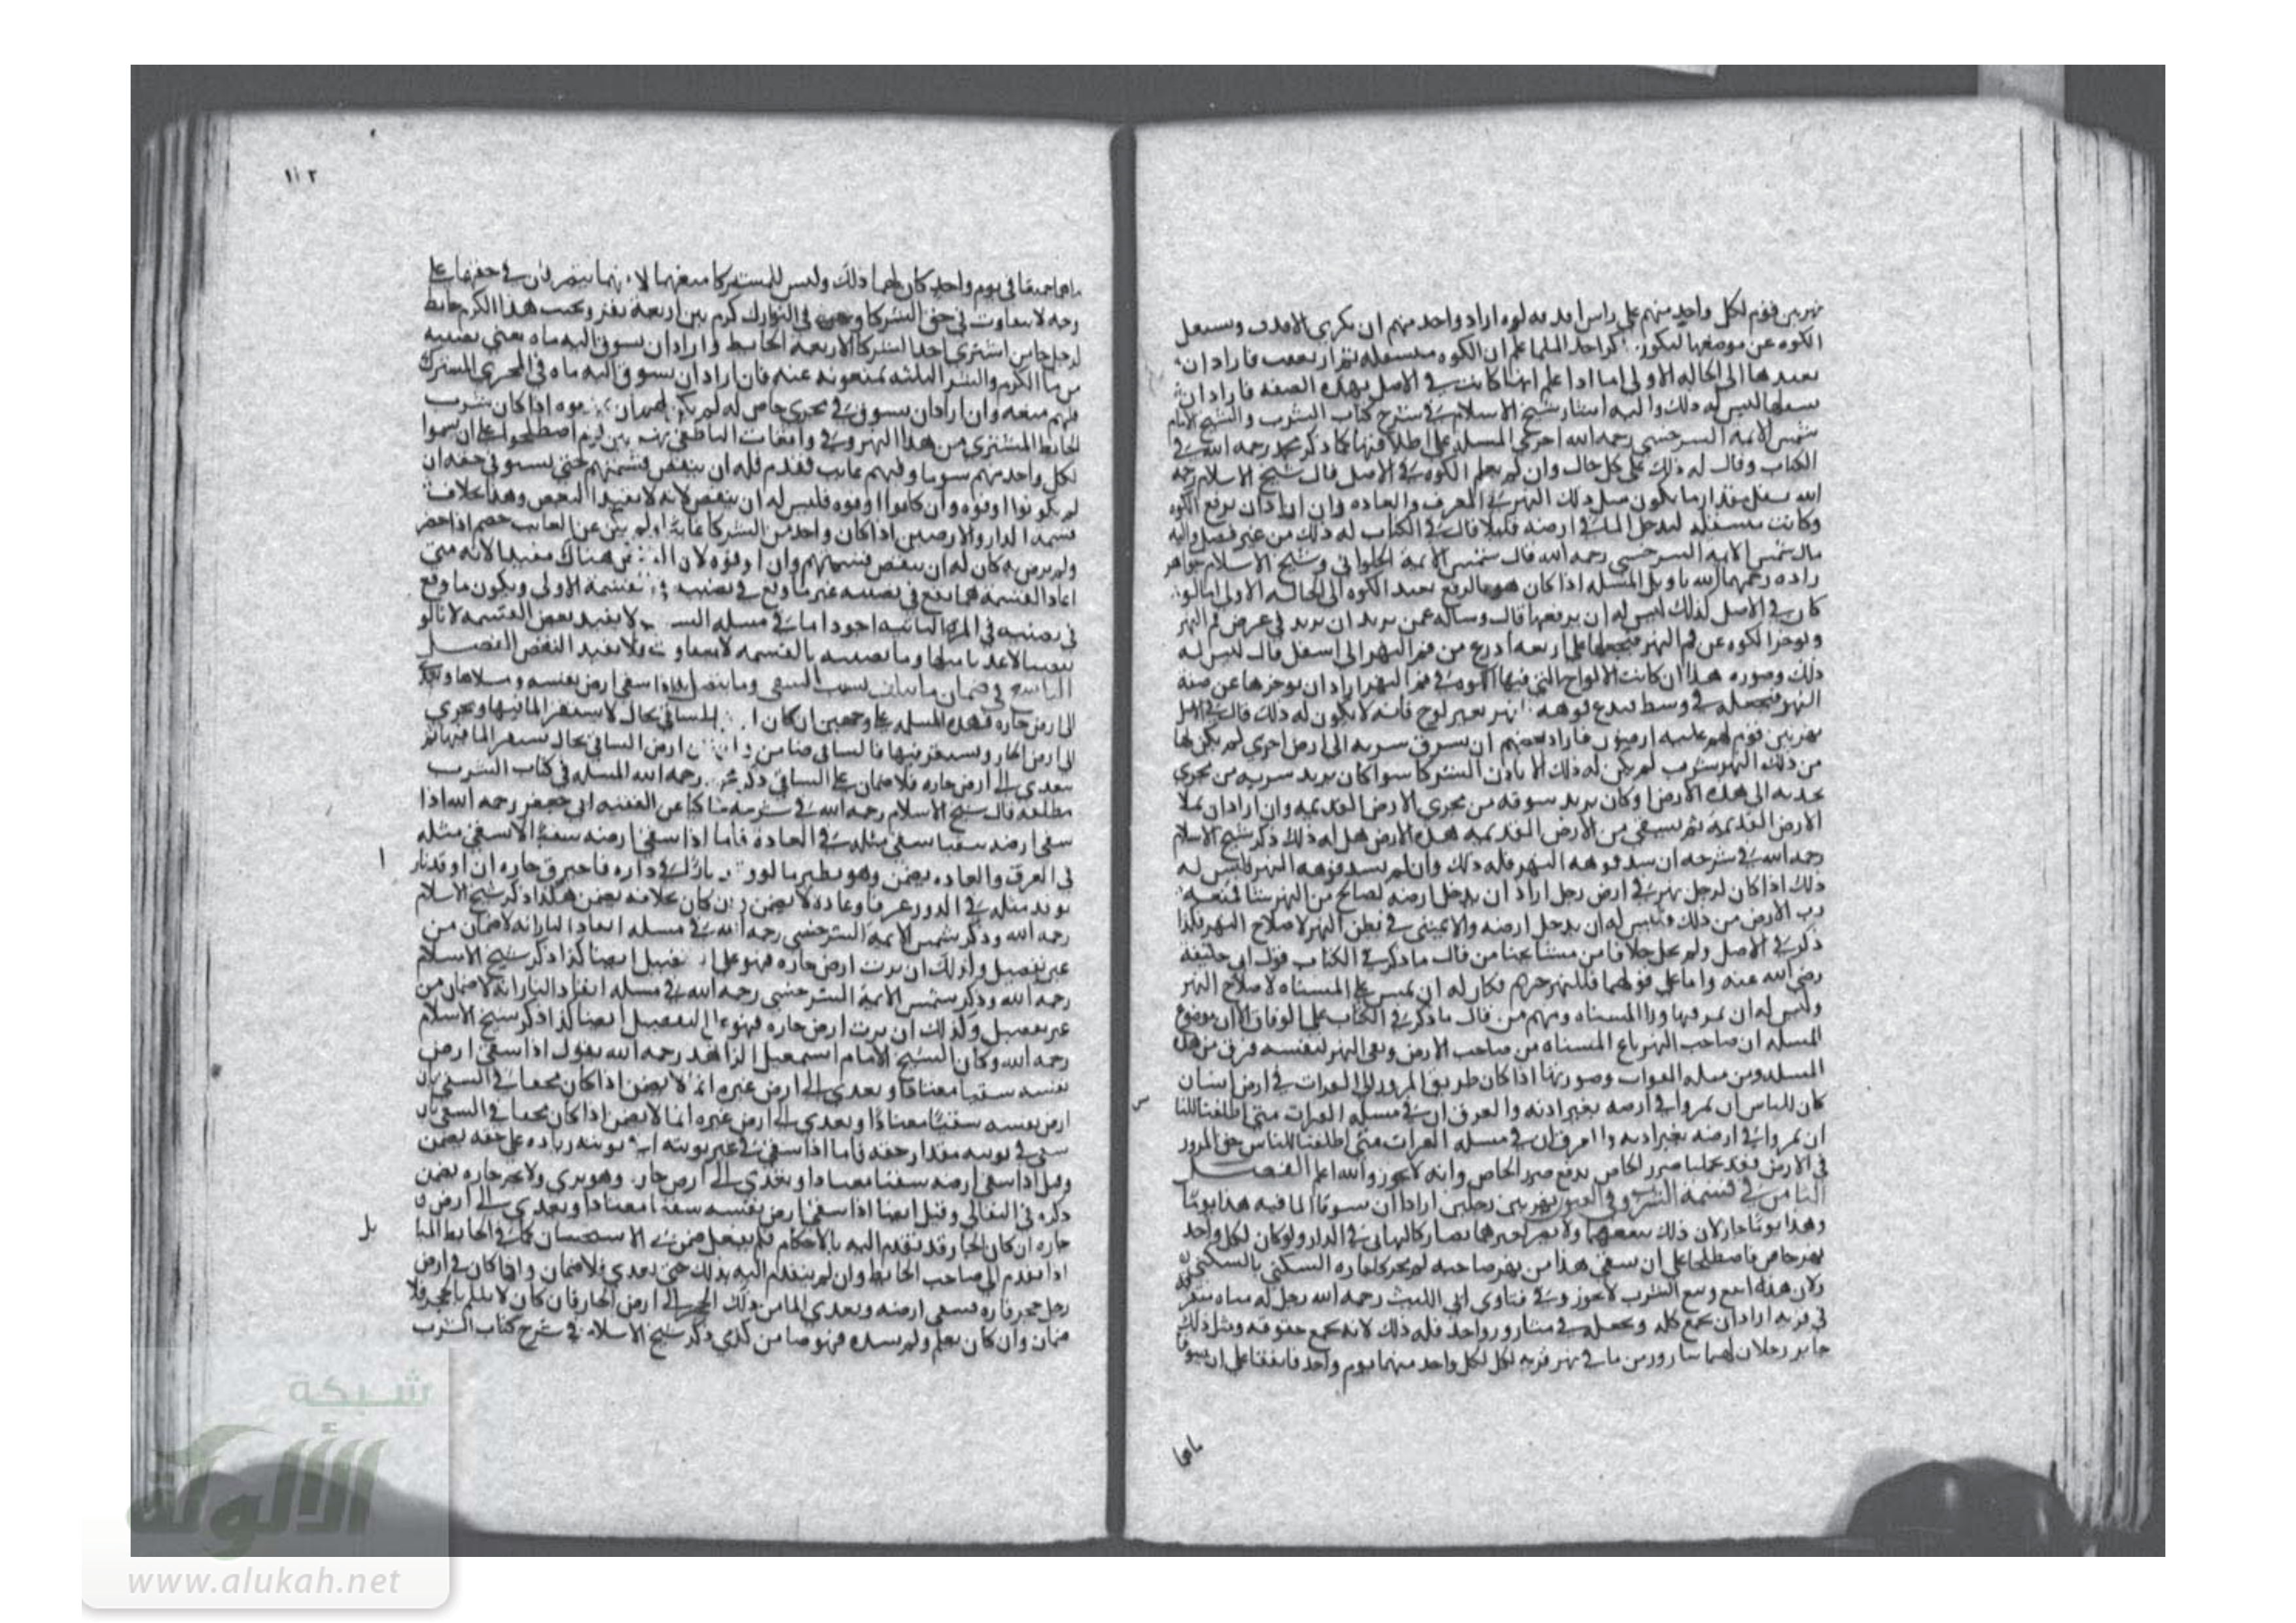 نهر بين قوم لكل واحد منهم على راس اراد واحد منهم ان يكري الاقدف ويسفل
الكوه عن موضعها ليكون اكثر اخذا للما علم ان الكوه متسفله ثم ارتفعت فاراد ان
يعيدها الى الحاله الاولى اما اذا علم انها كانت في الاصل بهذه الصفه فاراد ان
يسفلها ليس له ذلك واليه اشار شيخ الاسلام في شرح كتاب الشرب والشيخ الامام
شمس الايمه السرخسي رحمه الله اجرى المسله على اطلاقها كما ذكر محمد رحمه الله في
الكتاب وقال له ذلك على كل حال وان لم يعلم الكوه في الاصل قال شيخ الاسلام رحمه
الله يسفل مقدار ما يكون مثل ذلك النهر في العرف والعاده وان اراد ان يرفع الكوه
وكانت متسفله ليدخل الما في ارضه قليلا قال في الكتاب له ذلك من غير فصل واليه
مال شمس الايمه السرخسي رحمه الله قال شمس الايمه الحلواني وشيخ الاسلام خواهر
زاده رحمهما الله تاويل المسله اذا كان هو بالرفع يعيد الكوه الى الحاله الاولى اما لو
كان في الاصل كذلك ليس له ان يرفعها قال وسالته عمن يريد ان يزيد في عرض فم النهر
ويوخر الكوه عن فم النهر فيجعلها على اربعه اذرع من فم النهر الى اسفل قال ليس له
ذلك وصوره هذا ان كانت الالواح التي فيها الكوه في فم النهر اراد ان يوخرها عن فم
النهر فيجعله في وسط فيدع فوهه النهر بغير لوح فانه لا يكون له ذلك قال في الاصل
نهر بين قوم لهم عليه ارضون فاراد بعضهم ان يسوق شربه الى ارض اخرى لم يكن لها
من ذلك النهر شرب لم يكن له ذلك الا باذن الشركا سوا كان يريد شربه من مجرى
يحدثه الى هذه الارض او كان يريد سوقه من مجرى الارض القديمه وان اراد ان يملا
الارض القديمه ثم يسقي من الارض القديمه هذه الارض هل له ذلك ذكر شيخ الاسلام
رحمه الله في شرحه ان سد فوهه النهر فله ذلك وان لم يسد فوهه النهر فليس له
ذلك اذا كان لرجل نهر في ارض رجل اراد ان يدخل ارضه لصالح من النهر شيا فمنعه
رب الارض من ذلك فليس له ان يدخل ارضه والا يمشي في بطن النهر لاصلاح النهر هكذا
ذكر في الاصل ولم يحك خلافا من مشايخنا من قال ما ذكر في الكتاب قول ابي حنيفه
رضي الله عنه واما على قولهما فللنهر حريم فكان له ان يمر على المسناه لاصلاح النهر
وليس له ان يمر فيها ورا المسناه ومنهم من قال ما ذكر في الكتاب على الوفاق الا ان موضوع
المسله ان صاحب النهر باع المسناه من صاحب الارض وبقي النهر لنفسه فرق بين هذه
المسله وبين مسله الفرات وصورتها اذا كان طريق المرور الى الفرات في ارض انسان
كان للناس ان يمروا في ارضه بغير اذنه والفرق ان في مسله الفرات متى اطلقنا للنا
ان يمروا في ارضه بغير اذنه والفرق ان في مسله الفرات متى اطلقنا للناس حق المرور
في الارض فقد تحملنا ضرر الخاص بدفع ضرر الخاص وانه لا يجوز والله اعلم الفصل
الثامن في قسمة الشرب وفي الصور نهر بين رجلين ارادا ان يسوقا الما فيه هذا يوما
وهذا يوما جاز لان ذلك ينفعهما ولا يضر لغيرهما فصار كالتهايي في الدار ولو كان لكل واحد
نهر خاص فاصطلحا على ان يسقي هذا من نهر صاحبه لم يجز كاجاره السكنى بالسكنى
ولان هذا بيع وبيع الشرب لا يجوز وفي فتاوى ابي الليث رحمه الله رجل له مياه متفرقه
في قريه اراد ان يجمع كله ويجعله في مشارور واحد فله ذلك لانه يجمع حقوقه ومثل ذلك
جايز رجلان لهما مشارورين ما في نهر قريه لكل واحد منهما يوم واحد فاتفقا على ان يسوقا
ماهما
١١٢
ماهما جميعا في يوم واحد كان لهما ذلك وليس للشركا منعهما لانهما يتصرفان في حقهما على
وجه لا يتفاوت في حق الشركا وفي النوازل كرم بين اربعة نفر وبجنب هذا الكرم حايط
لرجل خاص اشترى احد الشركا الاربعه الحايط واراد ان يسوق اليه ماه يعني نصيبه
من ما الكرم والشركا الثلثه يمنعونه عنه فان اراد ان يسوق اليه ماه في المجرى المشترك
فلهم منعه وان اراد ان يسوق في مجرى خاص له لم يكن لهم ان يمنعوه اذا كان شرب
الحايط المشترى من هذا النهر وفي واقعات الناطفي نهر بين قوم اصطلحوا على ان يسموا
لكل واحد منهم سوما وفيهم غايب فقدم فله ان ينقض قسمتهم حتى يستوفي حقه ان
لم يكونوا اوفوه وان كانوا اوفوه فليس له ان ينقض لانه لا يفيد النقض وهذا بخلاف
قسمه الدار والارضين اذا كان واحد من الشركا غايبا ولم يكن عن الغايب خصم اذا حضر
ولم يرض به كان له ان ينقض قسمتهم وان اوفوه لان النقض هناك مفيد لانه متى
اعاد القسمه ربما يقع في نصيبه غير ما وقع في نصيبه في القسمه الاولى ويكون ما وقع
في نصيبه في المره الثانيه اجود اما في مسله الشرب لا يفيد نقض القسمه لانا لو
نقضنا لاعدنا مثلها وما نصيبه بالقسمه لا يتفاوت فلا يفيد النقض الفصل
التاسع في ضمان ما يتلف بسبب السقي وما يتصل بهذا اذا سقى ارض نفسه وملاها وتعدى
الى ارض جاره فهذه المسله على وجهين ان كان الما ساقه بحال لا يستقر الما فيها ويجري
الى ارض الجار ويستقر فيها فالساقي ضامن وان كان ارض الساقي بحال يستقر الما فيها ثم
يتعدى الى ارض جاره فلا ضمان على الساقي ذكر محمد رحمه الله المسله في كتاب الشرب
مطلقه قال شيخ الاسلام رحمه الله في شرحه حاكيا عن الفقيه ابي جعفر رحمه الله اذا
سقى ارضه سقيا يسقى مثله في العاده فاما اذا سقى ارضه سقيا لا يسقى مثله
في العرف والعاده يضمن وهو نظير ما لو اوقد نارا في داره فاحترق جاره ان اوقد نار
يوقد مثله في الدور عرفا وعاده لا يضمن وان كان بخلافه يضمن هكذا ذكر شيخ الاسلام
رحمه الله وذكر شمس الايمه السرخسي رحمه الله في مسله ايقاد النار انه لا ضمان من
غير تفصيل وكذلك ان نزت ارض جاره فهو على التفصيل ايضا كذا ذكر شيخ الاسلام
رحمه الله وذكر شمس الايمه السرخسي رحمه الله في مسله ايقاد النار انه لا ضمان من
غير تفصيل وكذلك ان نزت ارض جاره فهو على التفصيل ايضا كذا ذكر شيخ الاسلام
رحمه الله وكان الشيخ الامام اسمعيل الزاهد رحمه الله يقول اذا سقى ارض
نفسه سقيا معتادا وتعدى الى ارض غيره انما لا يضمن اذا كان محقا في السقي بان
ارض نفسه سقيا معتادا وتعدى الى ارض غيره انما لا يضمن اذا كان محقا في السقي بان
سقى في نوبته مقدار حقه فاما اذا سقى في غير نوبته او في نوبته زياده على حقه يضمن
وقيل اذا سقى ارضه سقيا معتادا وتعدى الى ارض جاره وهو يرى ولا يخبر جاره يضمن
ذكره في البقالي وقيل ايضا اذا سقى ارض نفسه سقيا معتادا وتعدى الى ارض
جاره ان كان الجار قد تقدم اليه بالاحكام فلم يفعل ضمن في الاستحسان كما في الحايط الما
اذا تقدم الى صاحب الحايط وان لم يتقدم اليه بذلك حتى تعدى فلا ضمان واذا كان في ارض
رجل جحر فاره فسقى ارضه وتعدى الما من ذلك الجحر الى ارض الجار فان كان لا يعلم بالجحر فلا
ضمان وان كان يعلم ولم يسده فهو ضامن كذى ذكر شيخ الاسلام في شرح كتاب الشرب
شبكة
الألوكة
www.alukah.net